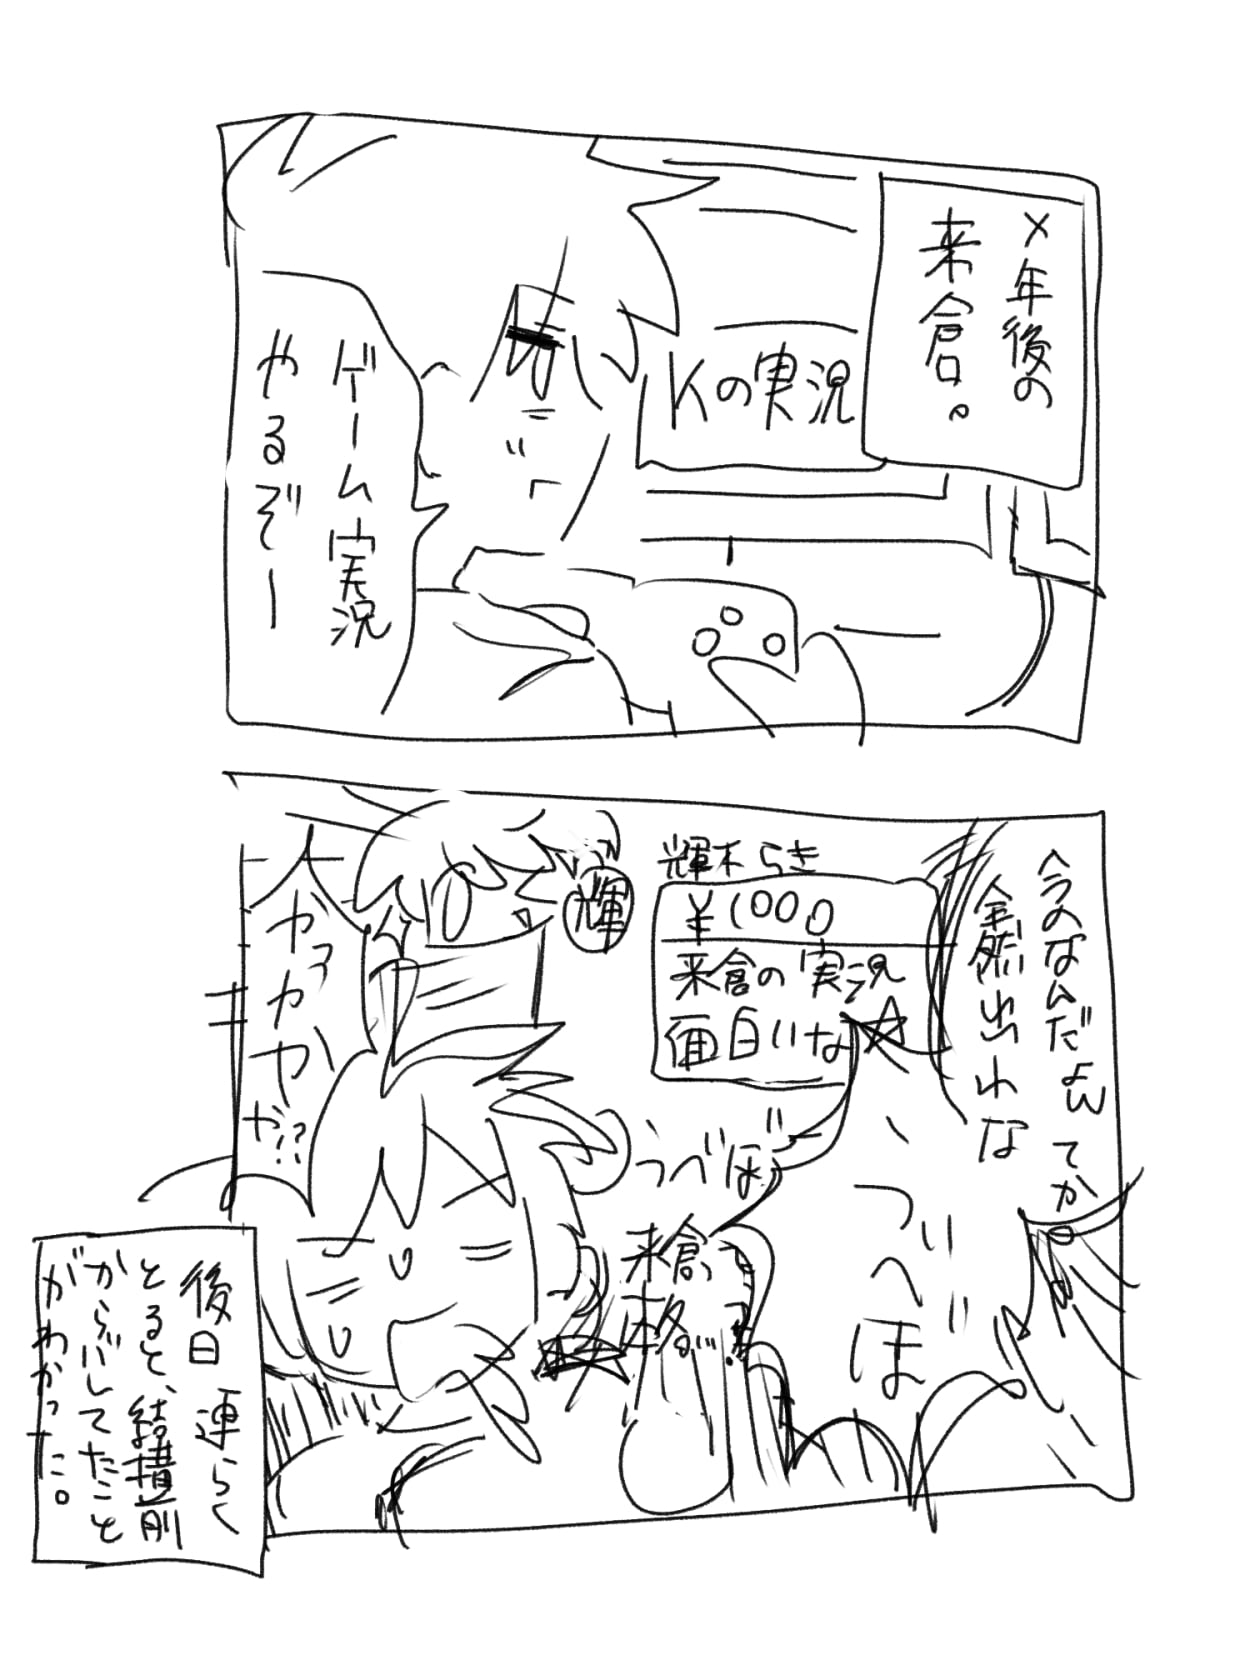 ×年後の
来倉。
Kの実況
ゲーム実況
やるぞー
今のなんだよw
てか
全然出れな
輝木らき
¥1000
来倉の実況
面白いな☆
輝
うべぼ
ついへぼ
来倉
本格
後日連らく
とると、結構前
からバしてたこと
がわかった。